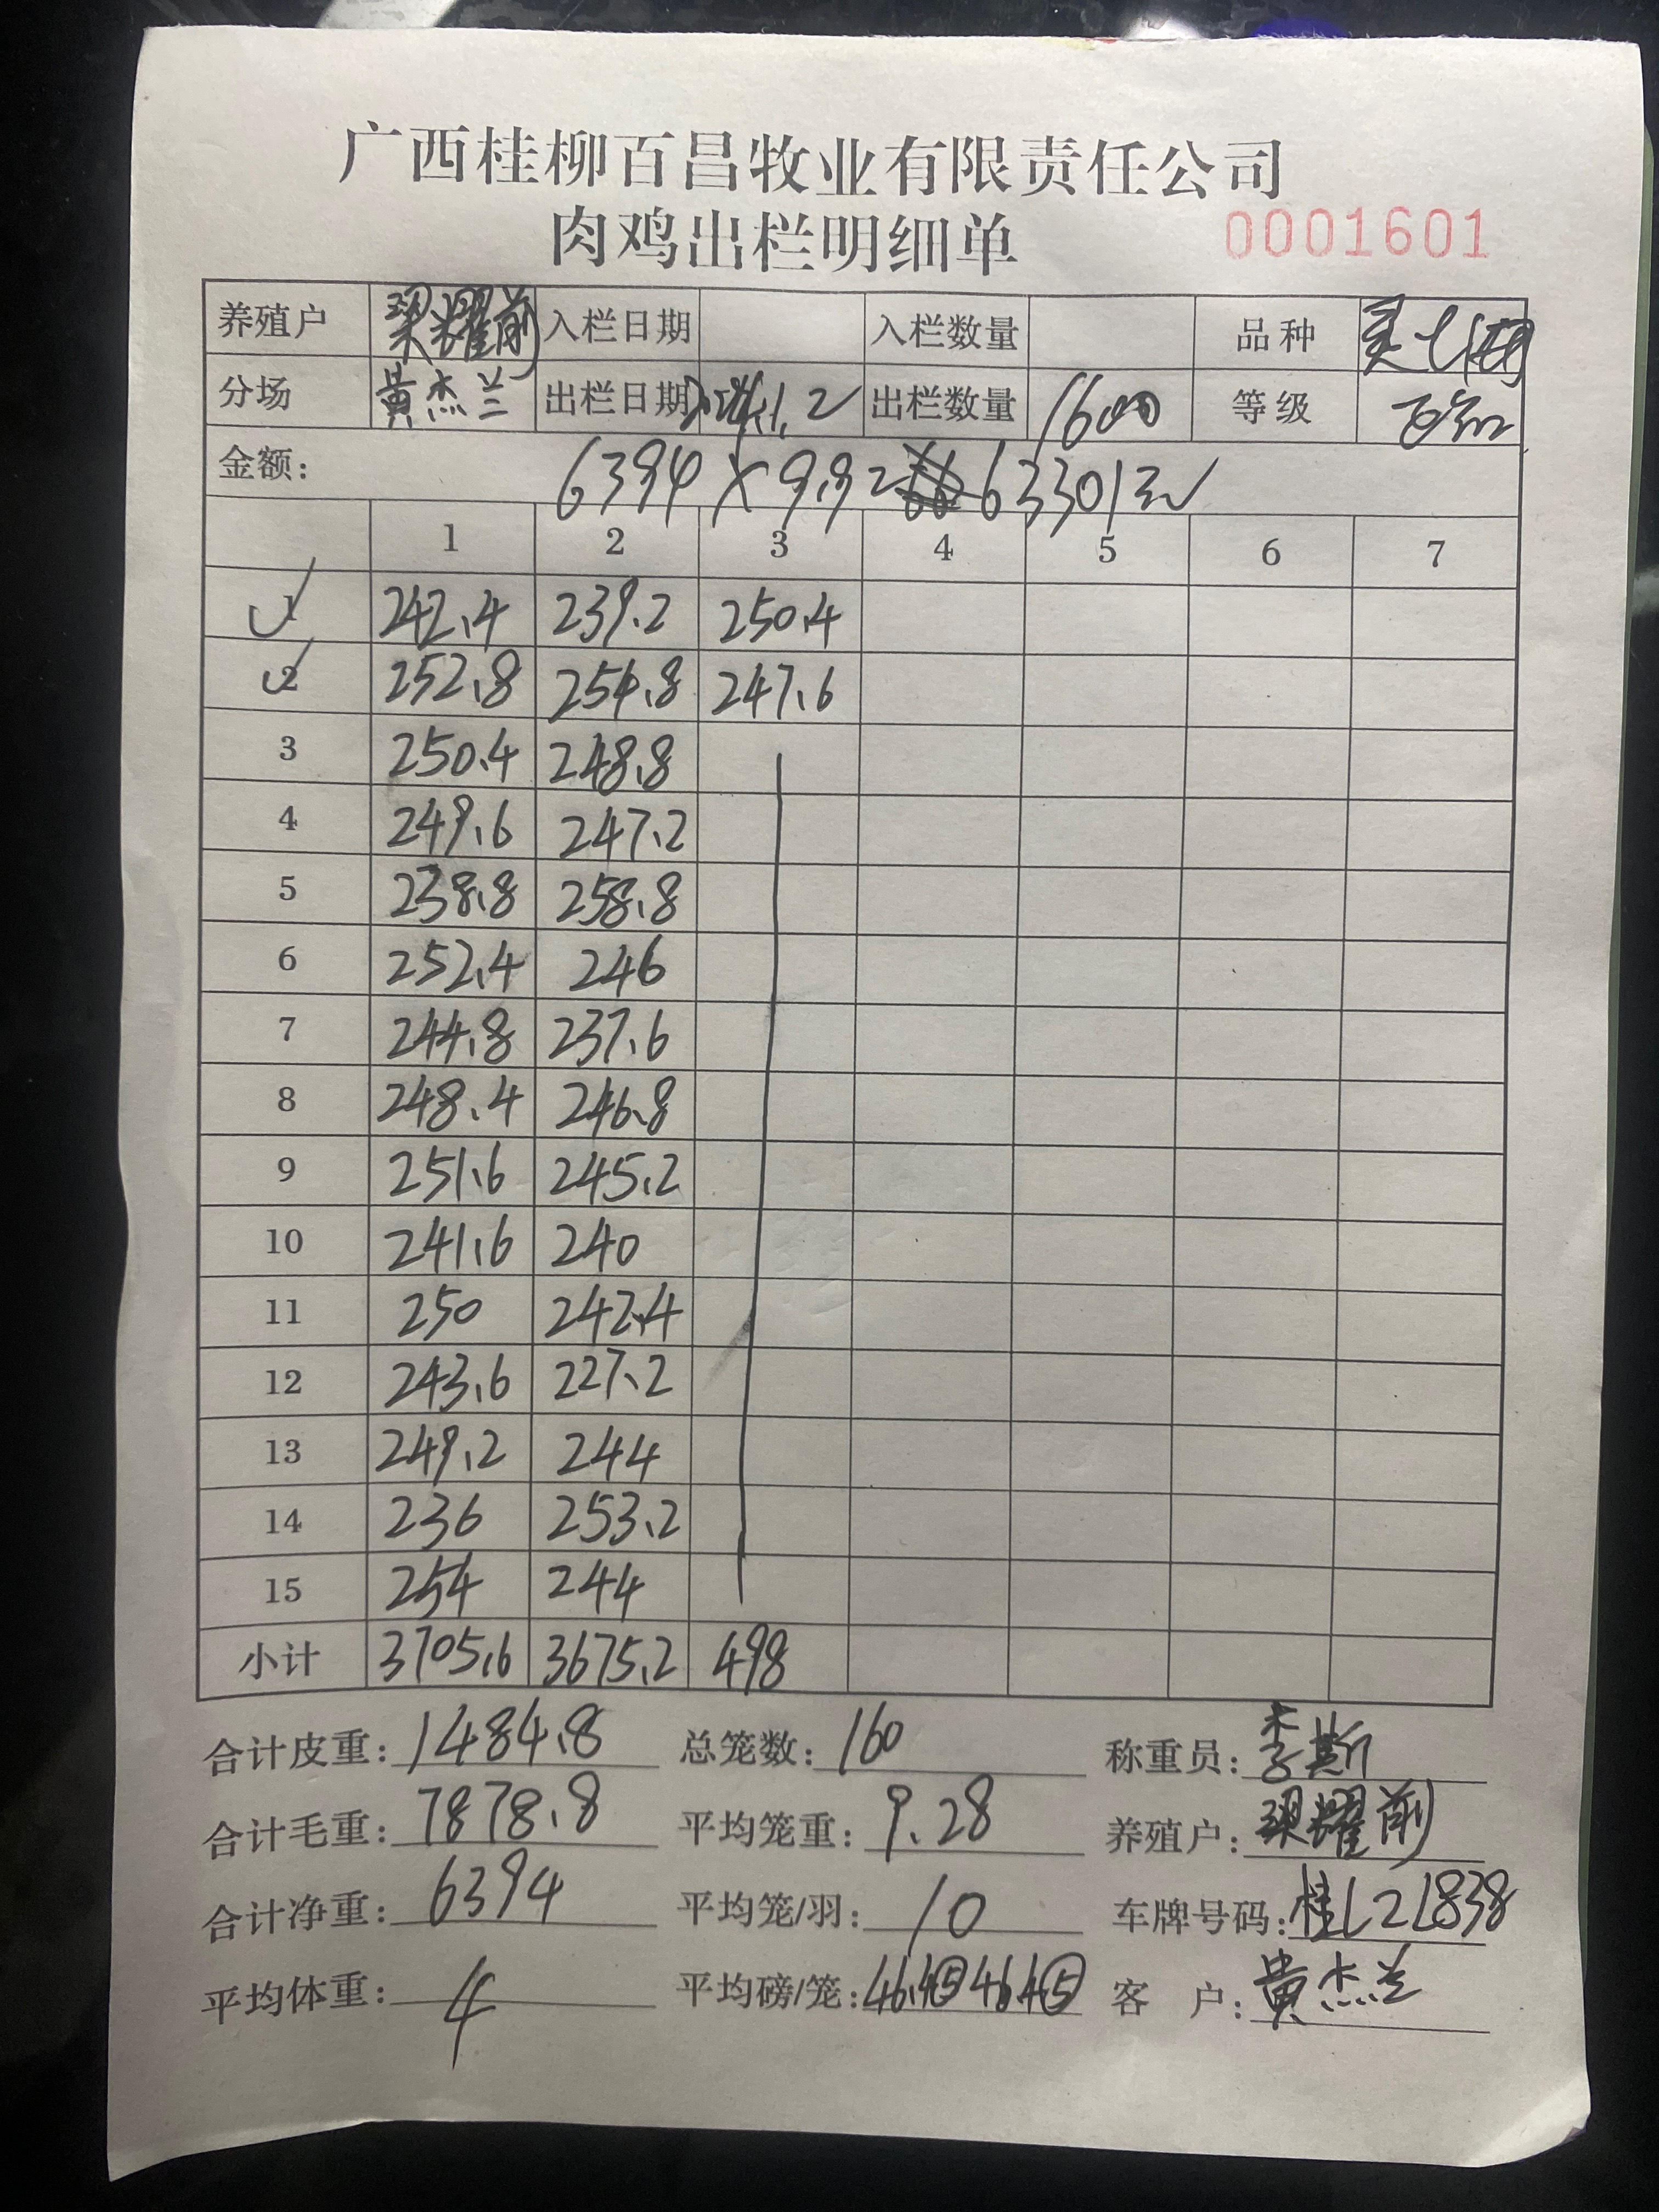 广西桂柳百昌牧业有限责任公司
肉鸡出栏明细单 0001601
养殖户 梁耀前 入栏日期 入栏数量 品种
分场 黄杰兰 出栏日期 出栏数量 1600 等级
金额: 6394 X 9.92 63301元
1 2 3 4 5 6 7
1 242.4 239.2 250.4
2 252.8 254.8 247.6
3 250.4 248.8
4 249.6 247.2
5 238.8 258.8
6 252.4 246
7 244.8 237.6
8 248.4 246.8
9 251.6 245.2
10 241.6 240
11 250 242.4
12 243.6 227.2
13 249.2 244
14 236 253.2
15 254 244
小计 3705.6 3675.2 498
合计皮重: 1484.8 总笼数: 160 称重员: 李斯
合计毛重: 7878.8 平均笼重: 9.28 养殖户: 梁耀前
合计净重: 6394 平均笼/羽: 10 车牌号码: 桂L2L838
平均体重: 4 平均磅/笼: 46.4⑤ 46.4⑤ 客 户: 黄杰兰